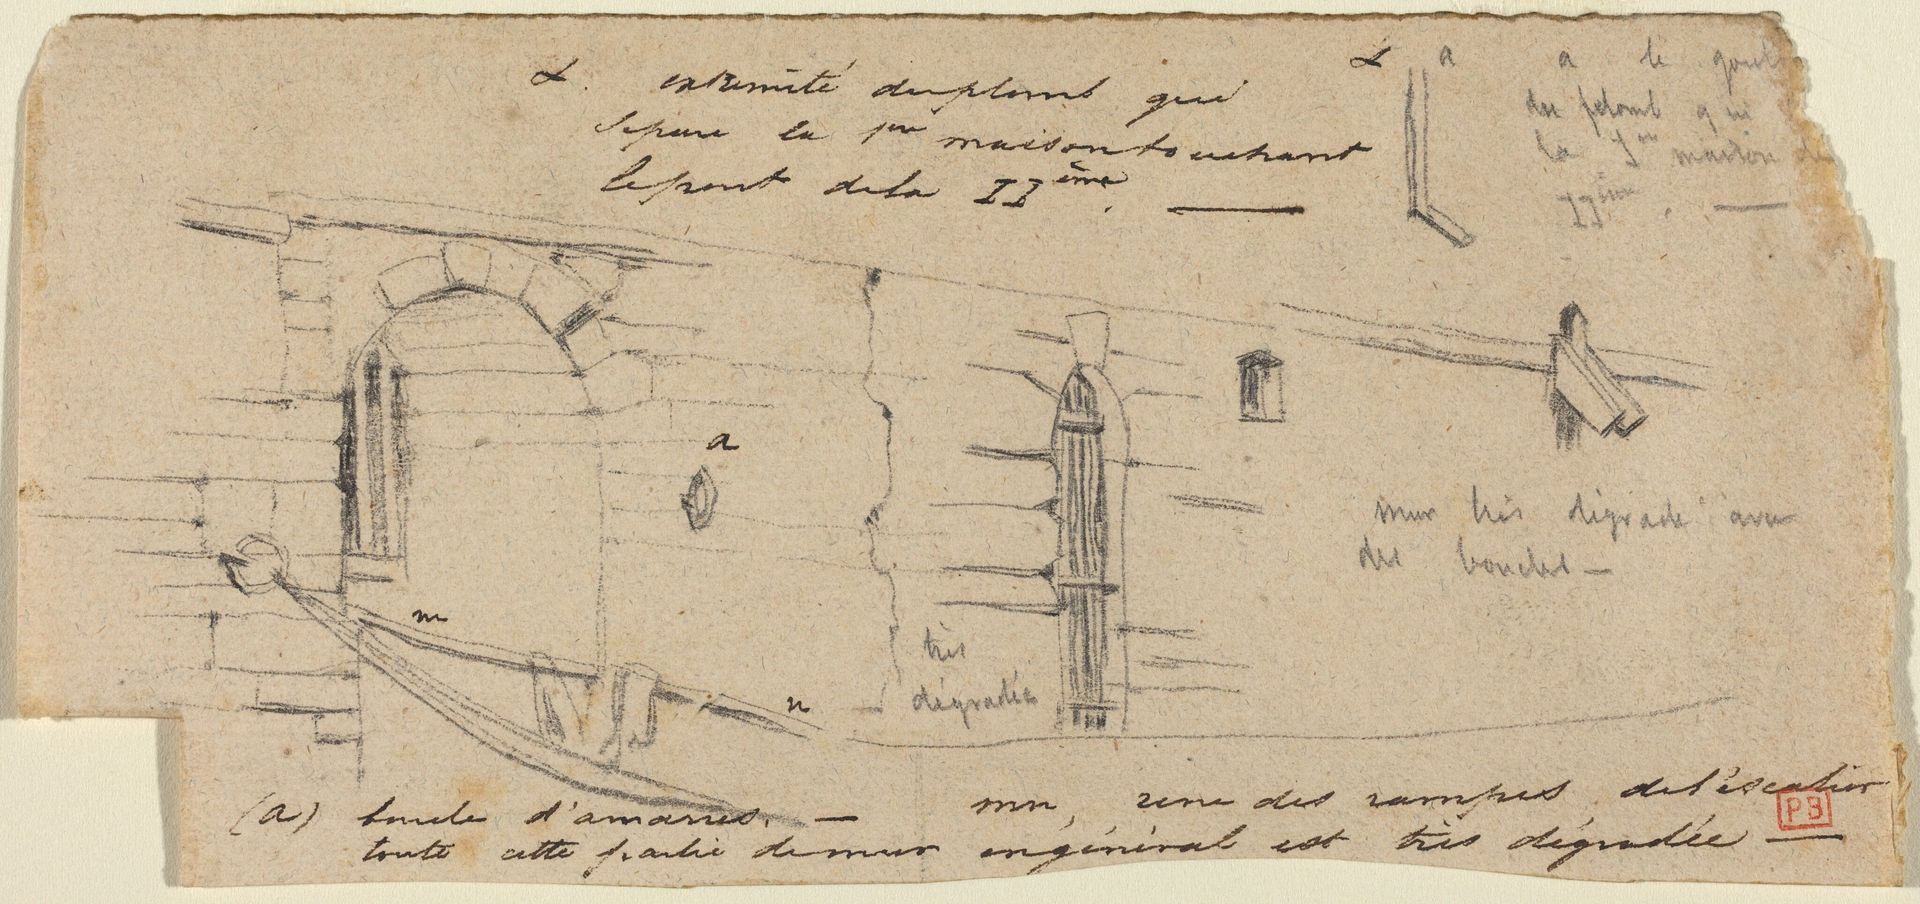 α. extremité du plomb qui
separe la 1ere maison touchant
le pont de la IIème. —
α a
a le goul
du plomb qui
la 1ere maison de
IIème. —
a
m
n
mur très dégradé avec
des boucles —
très
dégradée
(a) boucle d'amarres. — mn, une des rampes de l'escalier
toute cette partie de mur en général est très dégradée —
PB